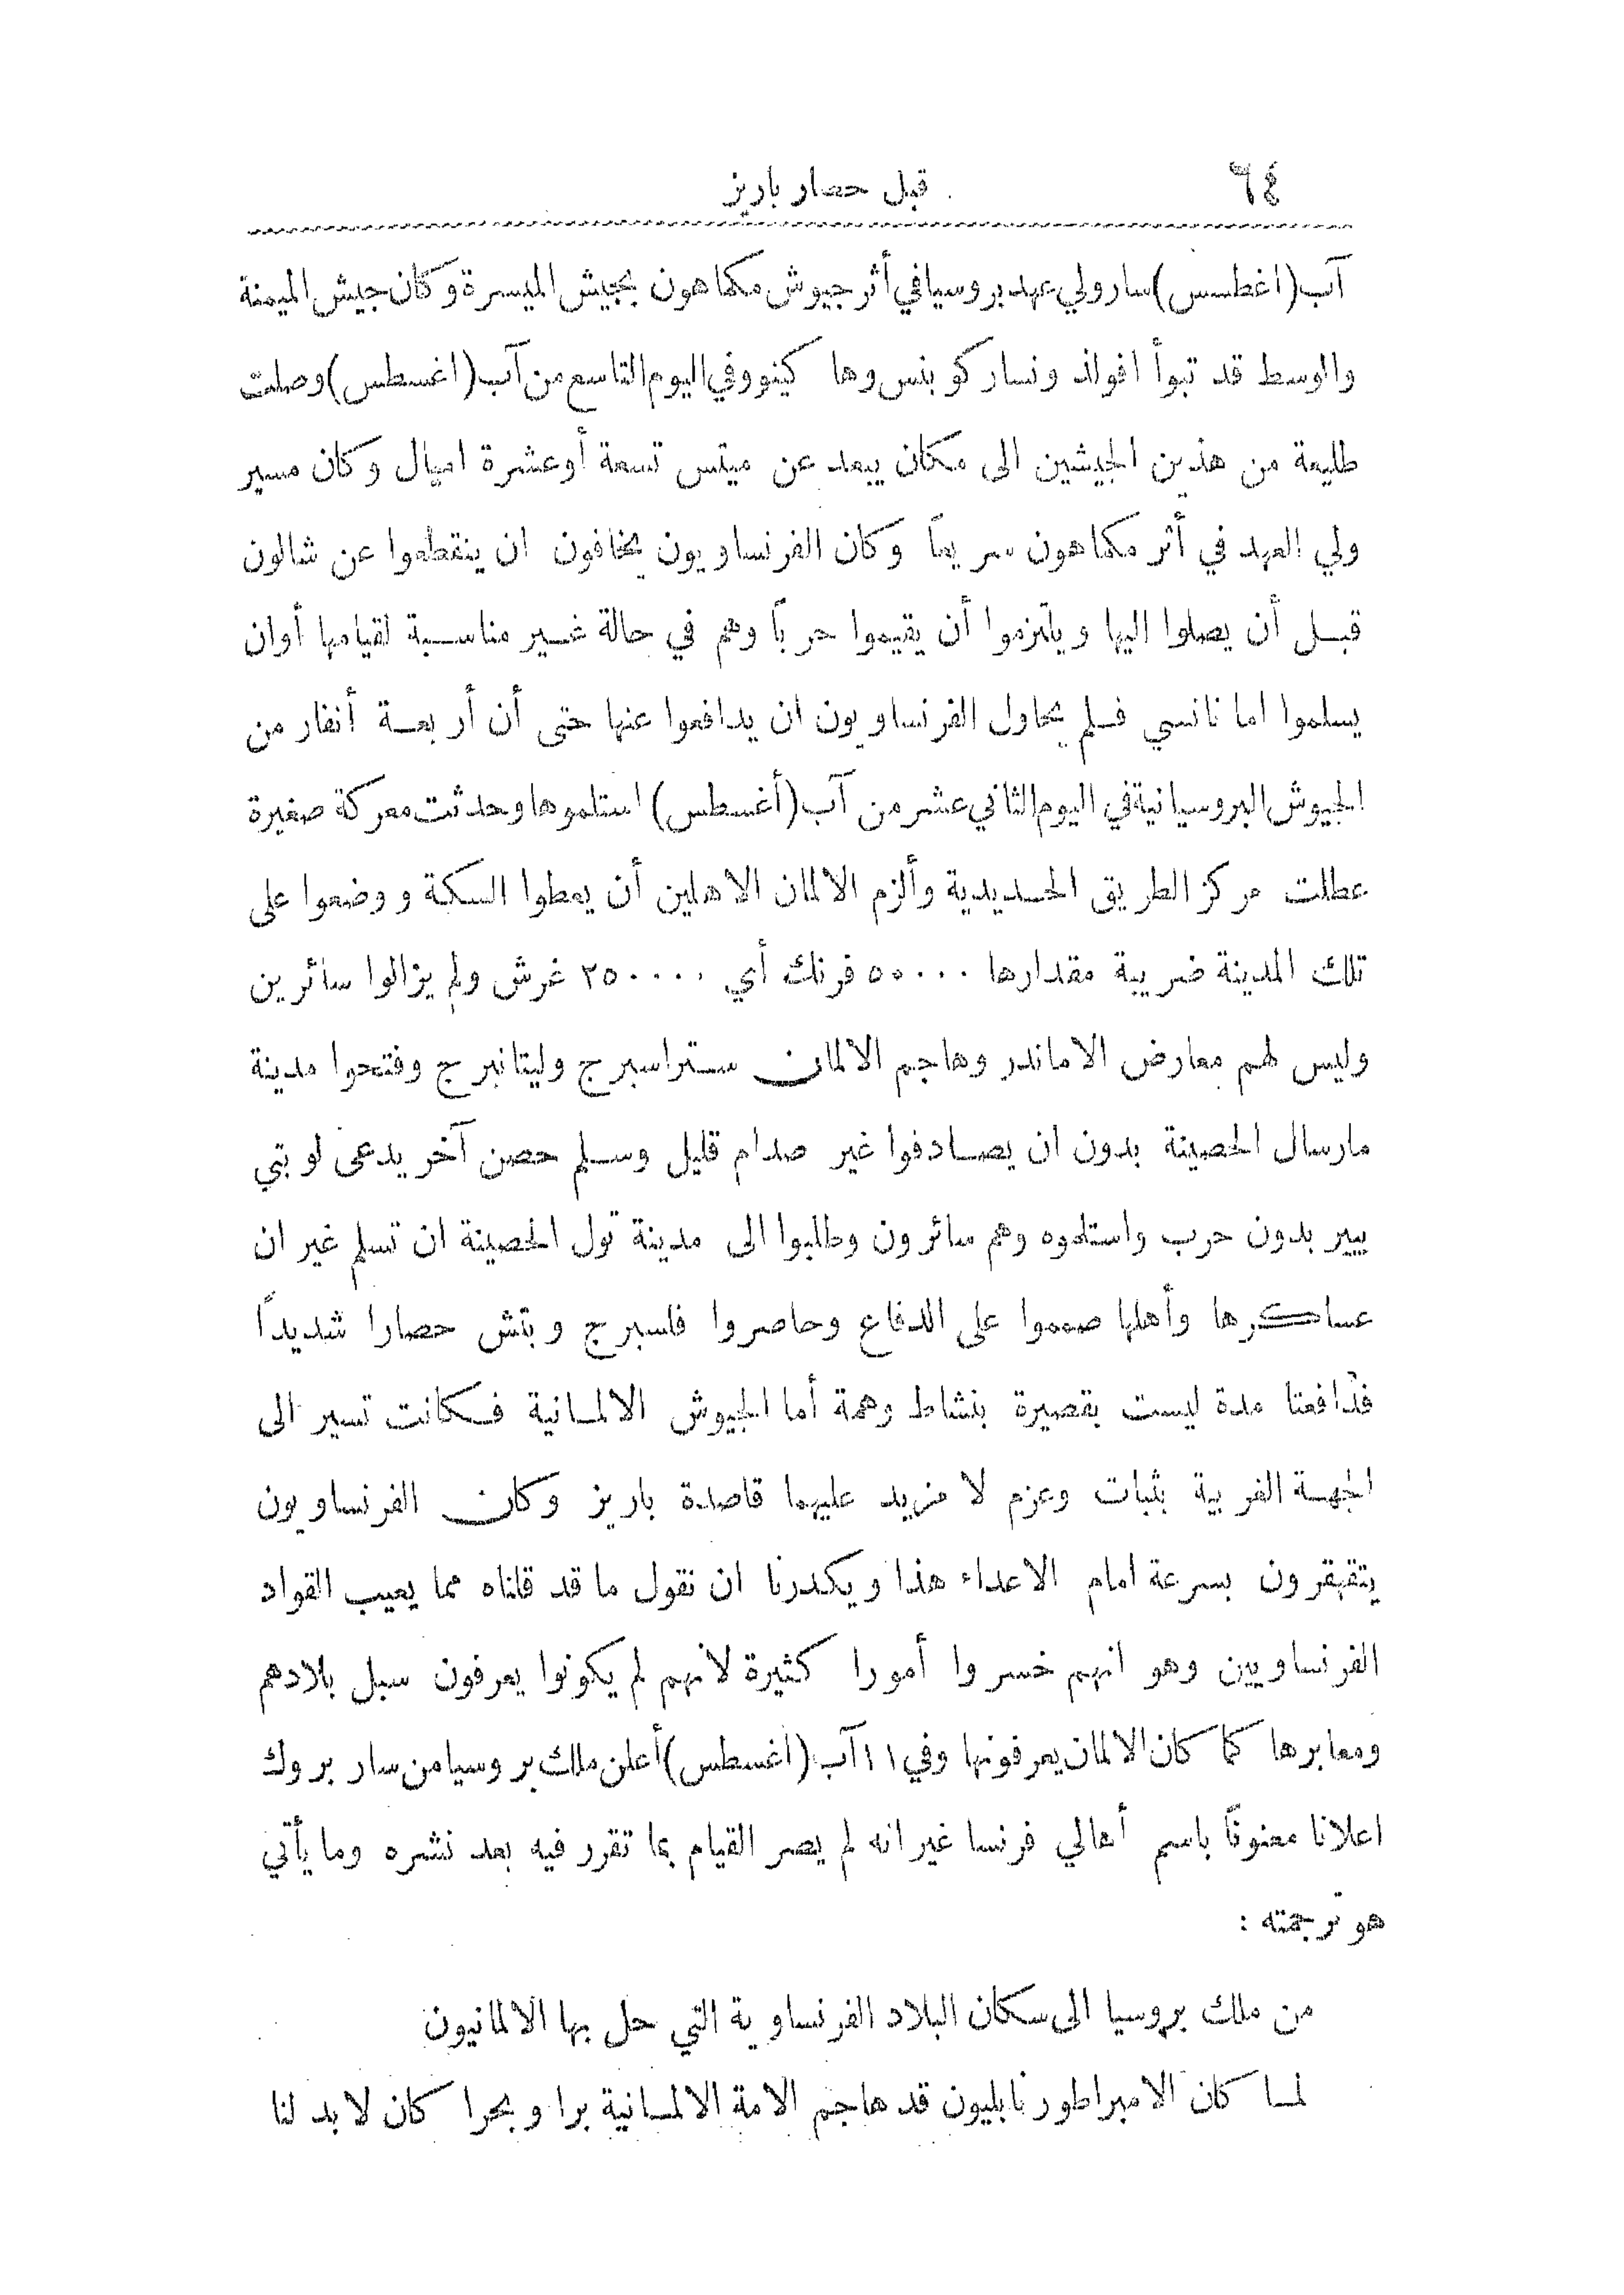 ٦٤ قبل حصار باريز
آب (اغطسس) سار ولي عهد بروسيا في أثر جيوش مكماهون بجيش الميسرة وكان جيش الميمنة
والوسط قد تبوأ افولد ونسار كوبنس وها كينو وفي اليوم التاسع من آب (اغسطس) وصلت
طليعة من هذين الجيشين الى مكان يبعد عن ميتس تسعة أو عشرة اميال وكان مسير
ولي العهد في أثر مكماهون سريعاً وكان الفرنساويون يخافون ان ينقطعوا عن شالون
قبل أن يصلوا اليها ويلتزموا أن يقيموا حرباً وهم في حالة غير مناسبة لقيامها أوان
يسلموا اما نانسي فلم يحاول الفرنساويون ان يدافعوا عنها حتى أن أربعة أنفار من
الجيوش البروسيانية في اليوم الثاني عشر من آب (أغسطس) استلموها وحدثت معركة صغيرة
عطلت مركز الطريق الحديدية وألزم الالمان الاهلين أن يعطوا السكة ووضعوا على
تلك المدينة ضريبة مقدارها ٥٠٠٠٠ فرنك أي ٢٥٠٠٠٠ غرش ولم يزالوا سائرين
وليس لهم معارض الا ماندر وهاجم الالمان ستراسبرج وليتانبرج وفتحوا مدينة
مارسال الحصينة بدون ان يصادفوا غير صدام قليل وسلم حصن آخر يدعى لوبتي
بيير بدون حرب واستلموه وهم سائرون وطلبوا الى مدينة تول الحصينة ان تسلم غير ان
عساكرها وأهلها صمموا على الدفاع وحاصروا فلسبرج وبتش حصارا شديداً
فدافعتا مدة ليست بقصيرة بنشاط وهمة أما الجيوش الالمانية فكانت تسير الى
الجهة الغربية بثبات وعزم لا مزيد عليهما قاصدة باريز وكان الفرنساويون
يتقهقرون بسرعة امام الاعداء هذا ويكدرنا ان نقول ما قد قلناه مما يعيب القواد
الفرنساويين وهو انهم خسروا أمورا كثيرة لانهم لم يكونوا يعرفون سبل بلادهم
ومعابرها كما كان الالمان يعرفونها وفي ١١ آب (اغسطس) أعلن ملك بروسيا من سار بروك
اعلانا معنوناً باسم أهالي فرنسا غير انه لم يصر القيام بما تقرر فيه بعد نشره وما يأتي
هو ترجمته :
من ملك بروسيا الى سكان البلاد الفرنساوية التي حل بها الالمانيون
لما كان الامبراطور نابليون قد هاجم الامة الالمانية برا وبحرا كان لا بد لنا